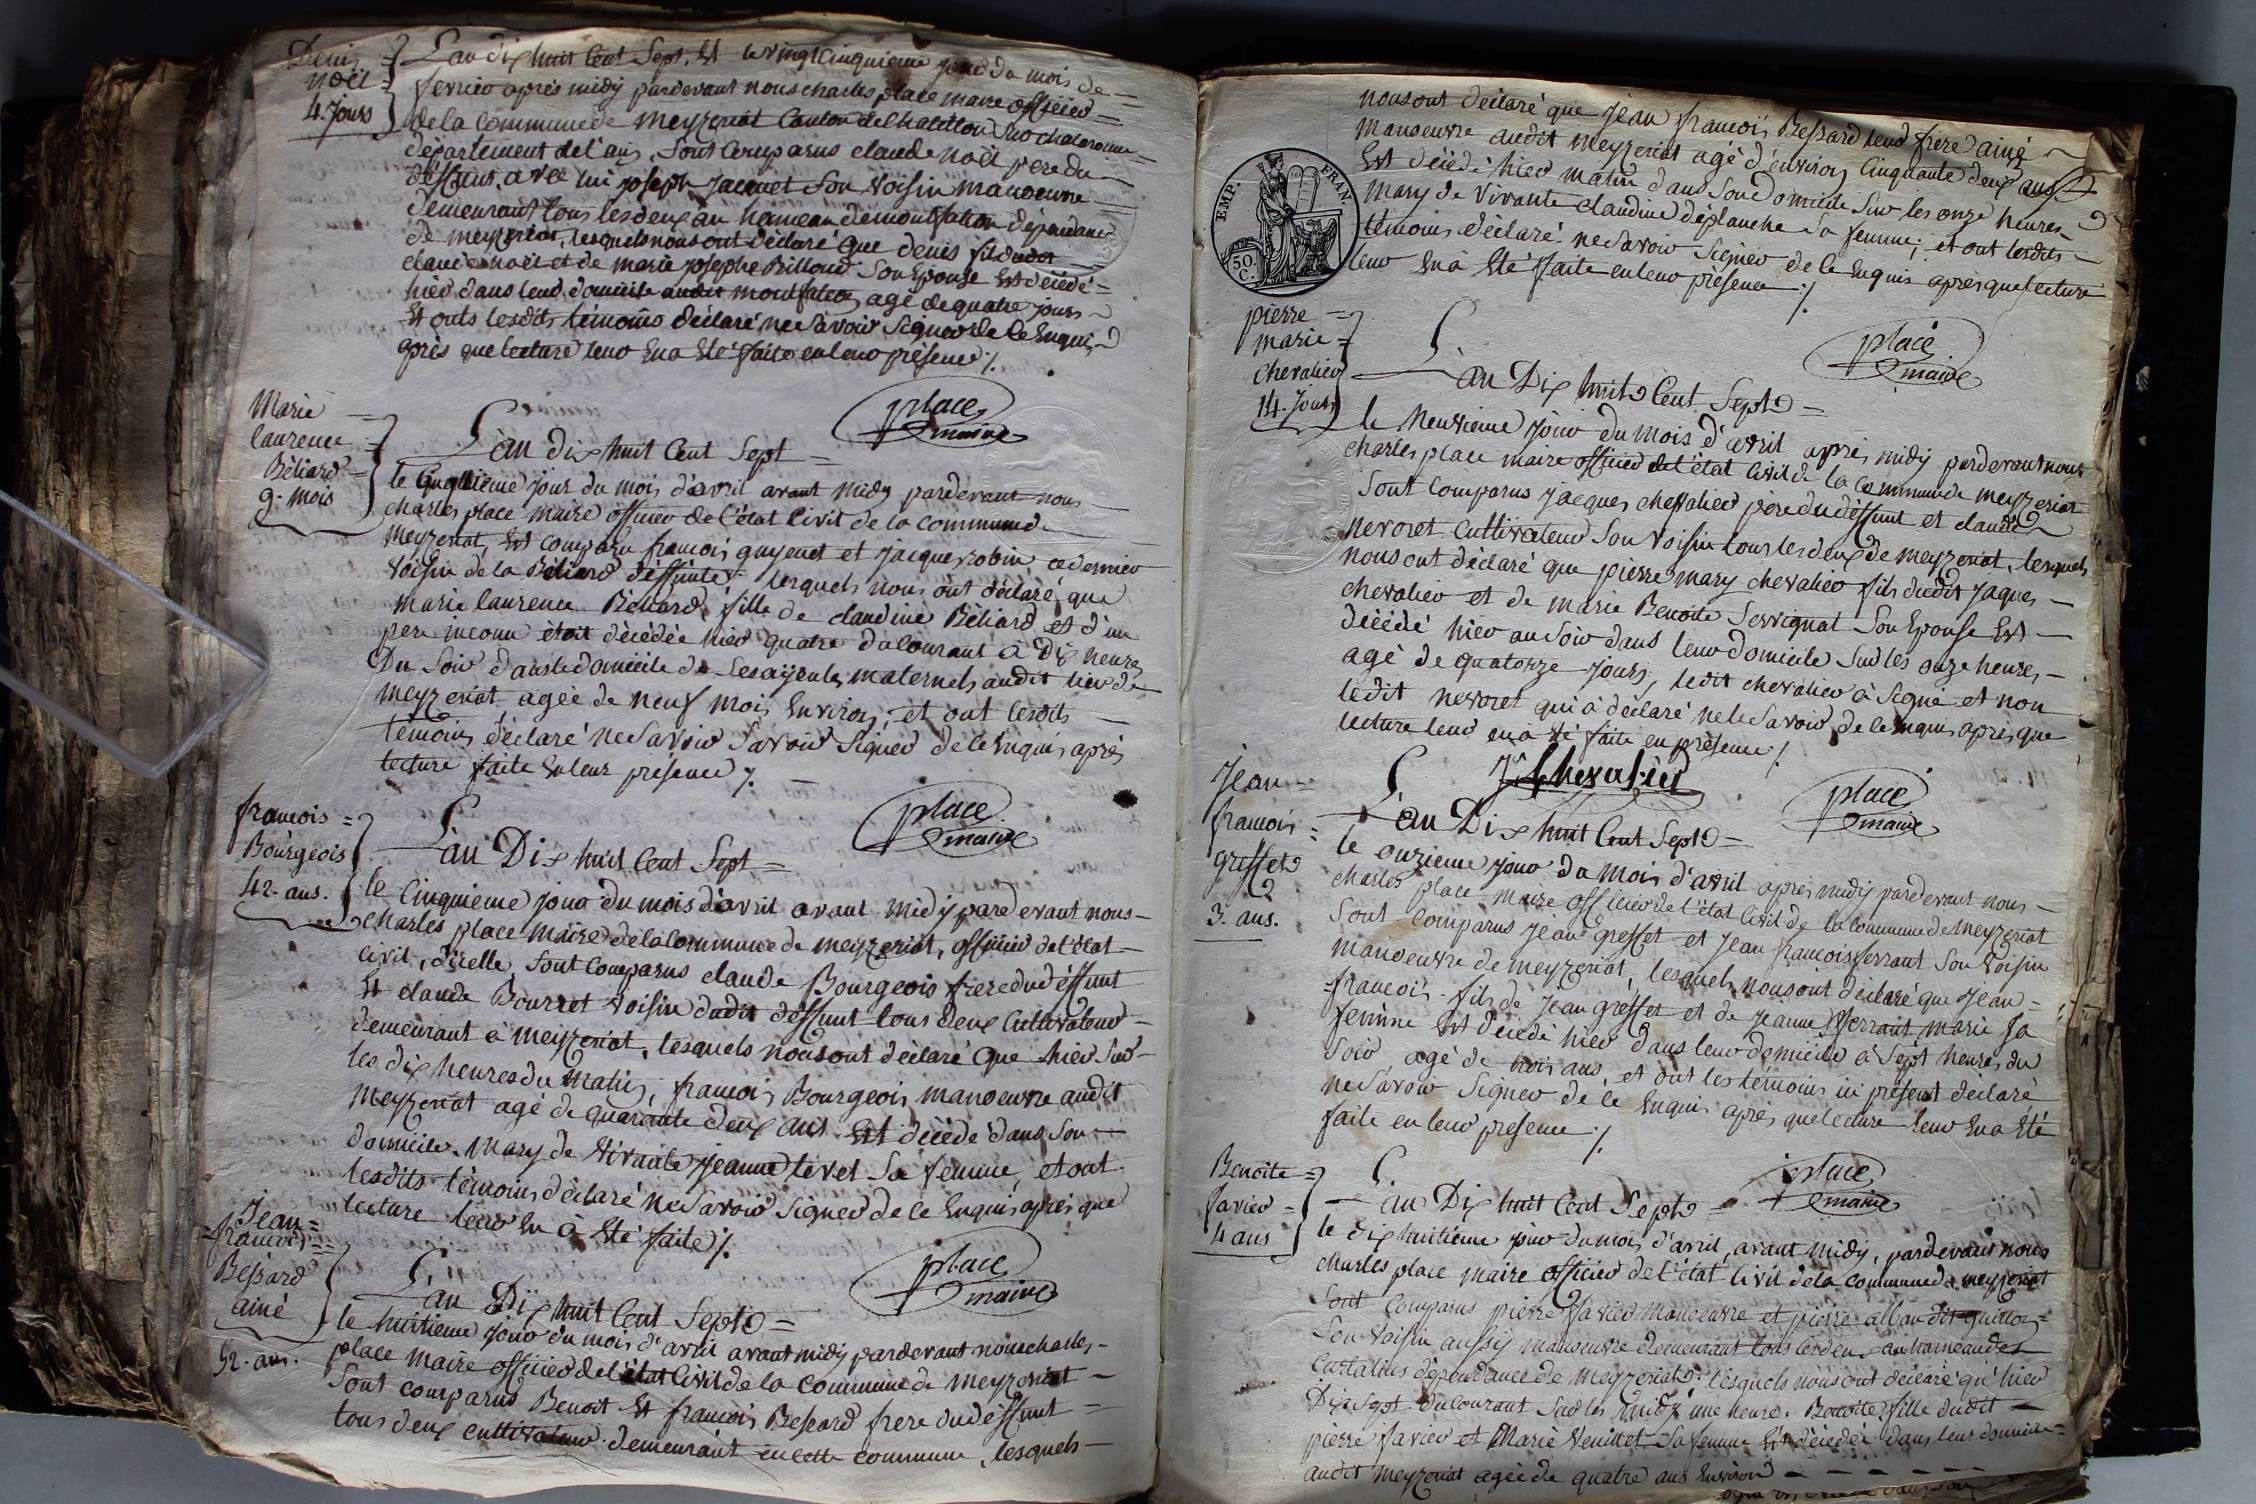 Denis
noël
4. Jours
L'an dix huit Cent Sept. Et le vingt cinquieme jour du mois de
fevrier après midy pardevant nous charles place maire officier
de la commune de meyzeriat Canton de Chatillon sur chalaronne
département de l'ain, Sont Comparus claude noël pere du
déffunt, avec lui joseph jacquet Son voisin manoeuvre
demeurant tous les deux au hameau de montfalcon dépendance
de meyzeriat, lesquels nous ont déclaré que denis fils dudit
claude noël et de marie josephe Billoud Son Epouse Est décédé
hier dans leur domicile audit montfalcon, agé de quatre jours
Et onts lesdits témoins déclaré ne Savoir Signer de ce Enquis
après que lecture leur en a Eté faite en leur présence ./.
place
maire
Marie
laurence
Béliard
9. mois
L'an dix huit Cent Sept
le Cinquieme jour du mois d'avril avant midy pardevant nous
charles place maire officier de l'état Civil de la commune de
meyzeriat, Est comparu francois guyenet et jacque robin ce dernier
voisin de la Béliard déffunte lesquels nous ont déclaré que
marie laurence Béliard, fille de claudine Béliard et d'un
pere inconnu était décédée hier quatre du Courant à dix heures
Du Soir dans le domicile de Ses ayeules maternels audit lieu de
meyzeriat, agée de neuf mois Environ, et ont lesdits
témoins déclaré ne Savoir Savoir Signer de ce Enquis après
lecture faite en leur présence ./.
place
maire
francois
Bourgeois
42. ans.
L'an Dix huit Cent Sept
le Cinquieme jour du mois d'avril avant midy pardevant nous
charles place maire de la Commune de meyzeriat, officier de l'état
Civil, d'icelle, Sont Comparus claude Bourgeois frere du déffunt
Et claude Bourret voisin dudit déffunt tous deux Cultivateur
demeurant à meyzeriat, lesquels nous ont déclaré que hier Sur
les dix heures du Matin, francois Bourgeois manoeuvre audit
meyzeriat agé de quarante deux ans Est décédé dans Son
domicile, Mary de vivante jeanne levet Sa femme, et ont
lesdits témoins déclaré ne Savoir Signer de ce Enquis après que
lecture leur En à Eté faite ./.
place
maire
Jean
francois
Bessard
ainé
52. ans.
L'an Dix huit Cent Sept
le huitieme jour du mois d'avril avant midy pardevant nous charles
place maire officier de l'état Civil de la Commune de meyzeriat
Sont comparus Benoit Et francois Bessard frere du déffunt
tous deux cultivateur demeurant en cette commune, lesquels
nous ont déclaré que jean francois Bessard leur frère ainé
Manoeuvre audit meyzeriat agé d'environ Cinquante deux ans
Est décédé hier matin dans Son domicile Sur les onze heures
mary de vivante claudine déplanche Sa femme; et ont lesdits
témoins déclaré ne Savoir Signer de ce Enquis après que lecture
leur En à Eté faite en leur présence ./.
EMP. FRAN.
50. C.
place
maire
pierre
marie
chevalier
14. Jours
L'an Dix huit Cent Sept
le Neuvieme jour du mois d'avril après midy pardevant nous
charles place maire officier de l'état Civil de la Commune de meyzeriat
Sont Comparus jacques chevalier père du déffunt et claude
nevoret Cultivateur Son voisin tous les deux de meyzeriat, lesquels
nous ont déclaré que pierre mary chevalier fils dudit jaques
chevalier et de marie Benoite Servignat Son Epouse Est
décédé hier au Soir dans leur domicile Sur les onze heures,
agé de quatorze jours, ledit chevalier à Signé et non
ledit nevoret qui à déclaré ne le Savoir de ce Enquis, après que
lecture leur en à été faite en présence ./.
Chevalier
place
maire
Jean
francois
greffet
3. ans.
L'an Dix huit Cent Sept
le onzieme jour du mois d'avril après midy pardevant nous
charles place maire officier de l'état Civil de la Commune de Meyzeriat
Sont comparus jean greffet et jean francois ferrant Son voisin
manoeuvre de meyzeriat, lesquels nous ont déclaré que jean
francois fils de jean greffet et de jeanne ferrant marie Sa
femme Est décédé hier dans leur domicile à Sept heures du
Soir agé de trois ans, et ont les témoins ici présent déclaré
ne Savoir Signer de ce Enquis après que lecture leur En a Eté
faite en leur présence ./.
place
maire
Benoite
favier
4 ans
L'an Dix huit Cent Sept
le dix huitieme jour du mois d'avril, avant midy, pardevant nous
charles place maire officier de l'état Civil de la commune de meyzeriat
Sont Comparus pierre favier Manoeuvre et pierre alban dit
Son voisin aussi manoeuvre demeurant tous les deux au hameau des
dépendance de Meyzeriat; lesquels nous ont déclaré qu'hier
Dix Sept du Courant Sur les midy une heure, Benoite fille dudit
pierre favier et Marie Sa femme Est décédée dans leur domicile
audit meyzeriat agée de quatre ans Environ